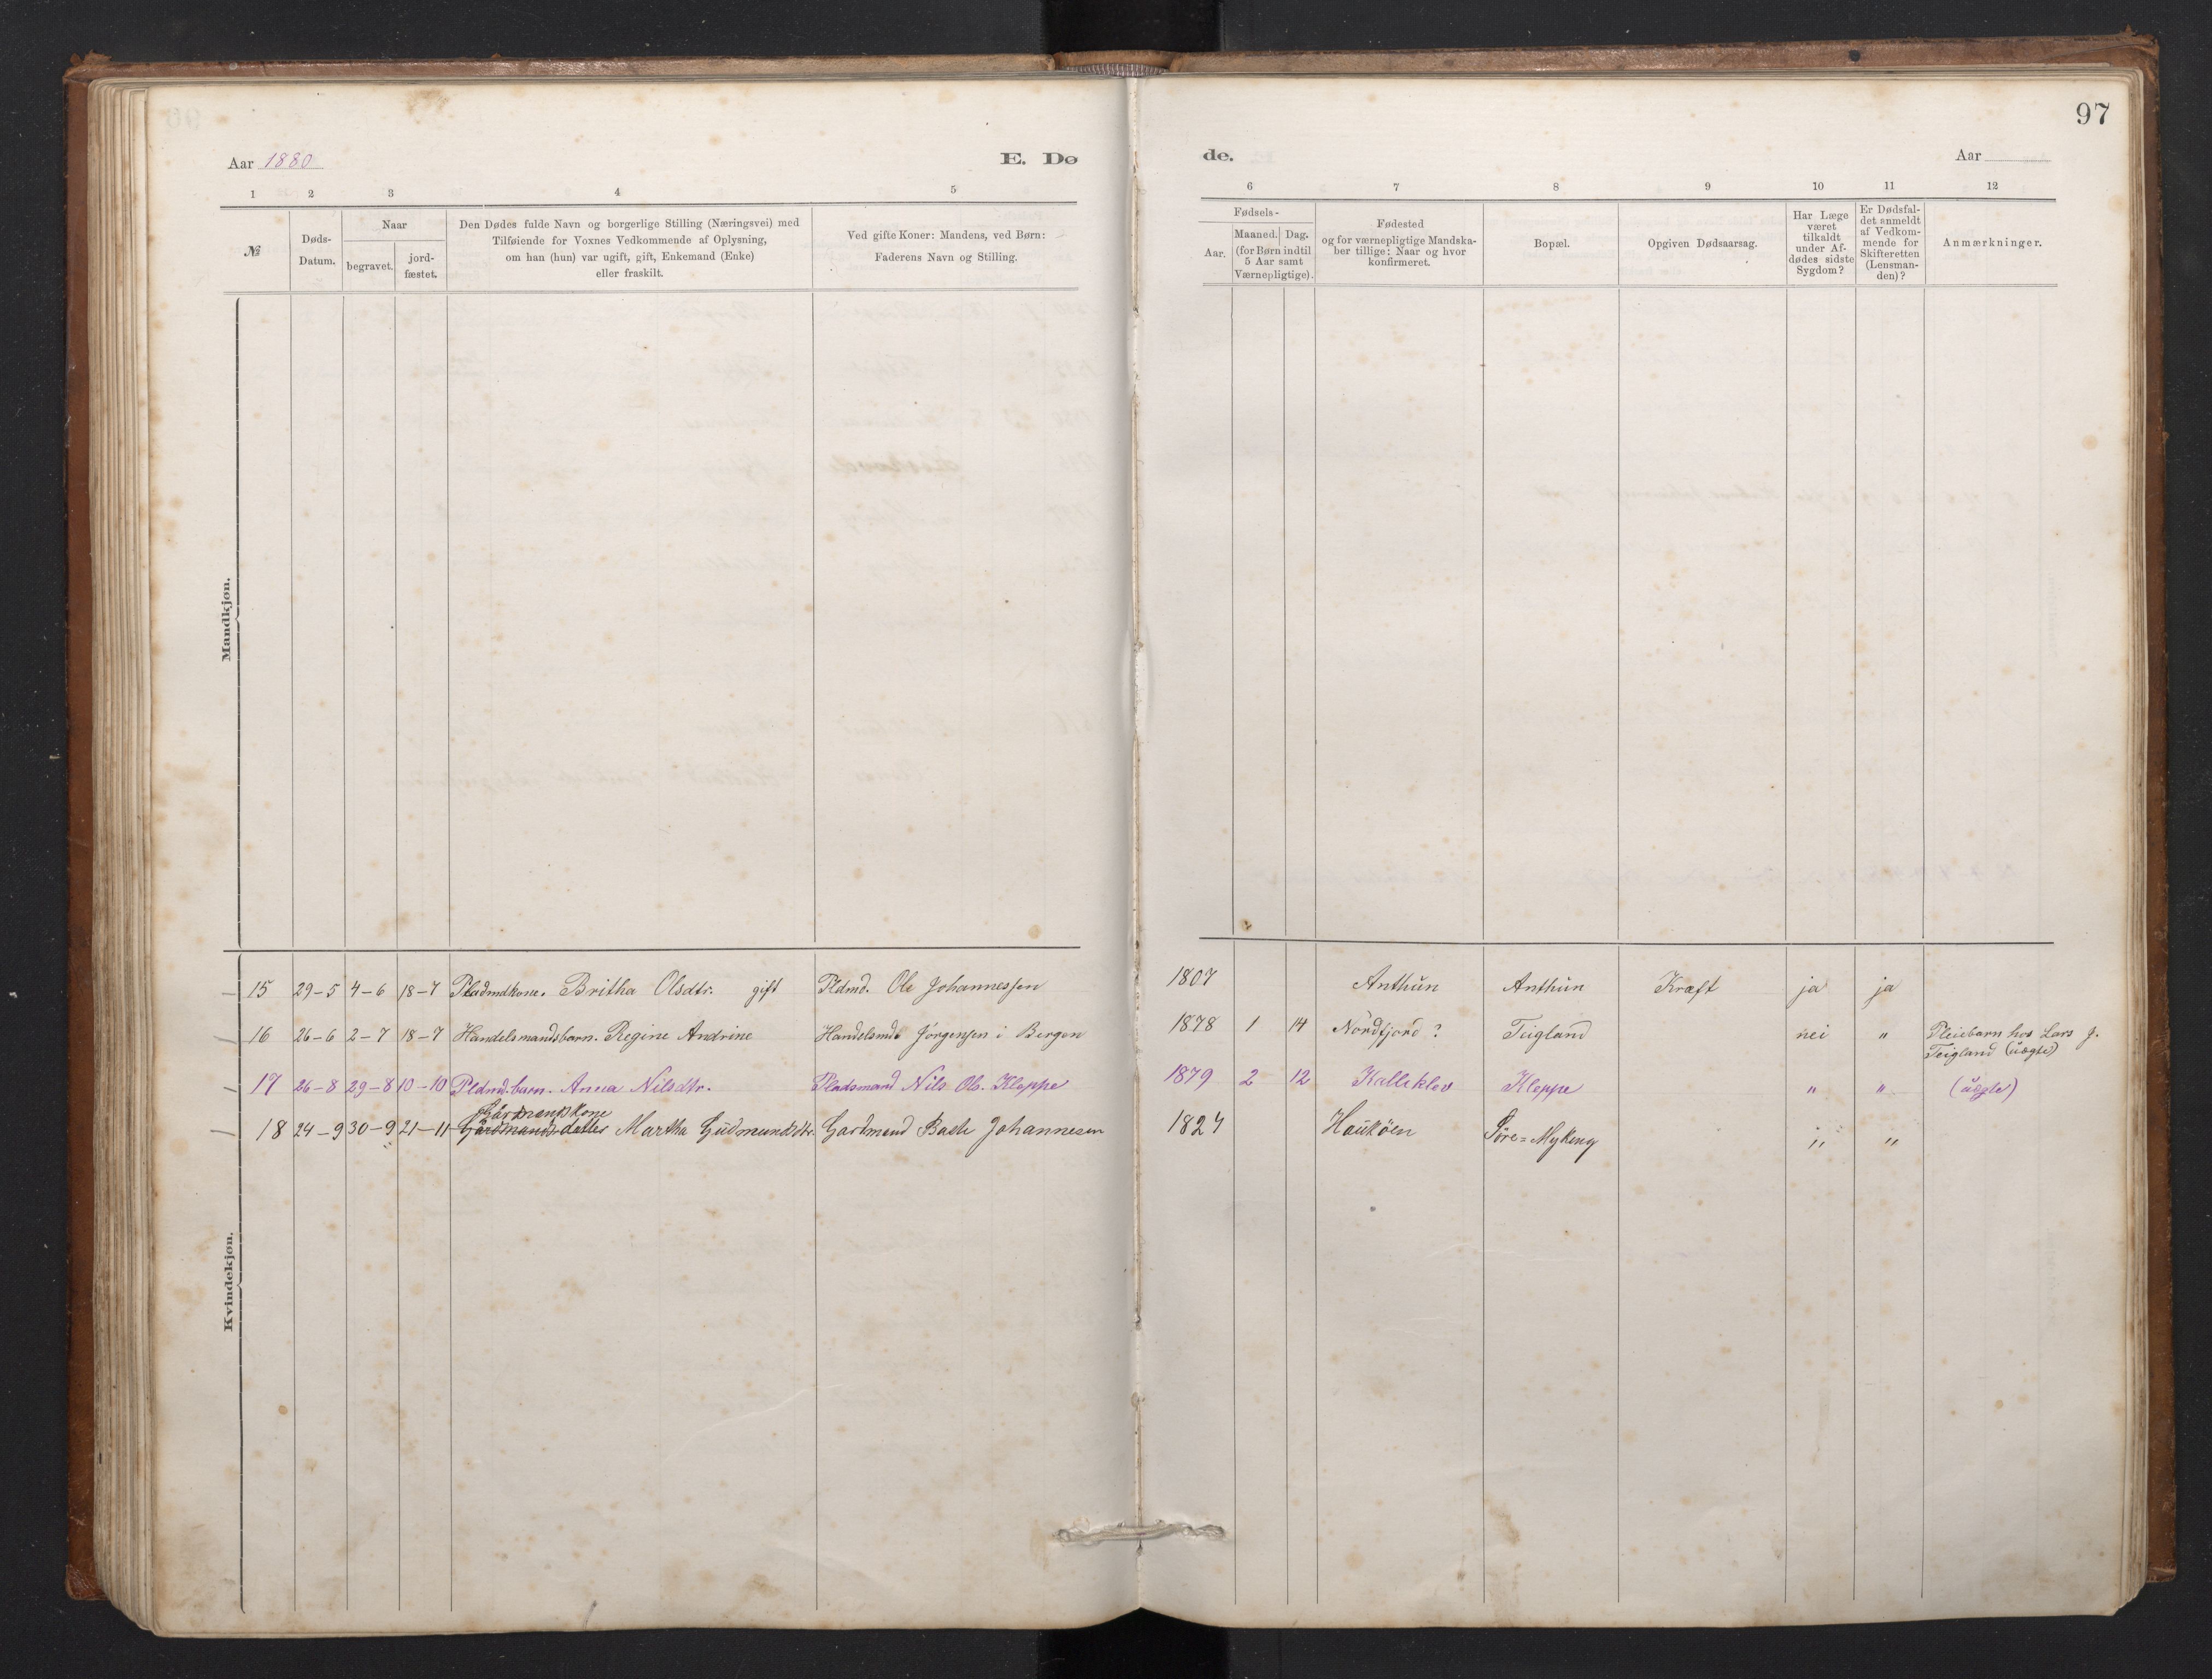 97
Aar 1880 E. Dø
de. Aar
1 2 3 4 5
6 7 8 9 10 11 12
№
Døds-
Datum.
Naar
begravet.
jord-
fæstet.
Den Dødes fulde Navn og borgerlige Stilling (Næringsvei) med
Tilføiende for Voxnes Vedkommende af Oplysning,
om han (hun) var ugift, gift, Enkemand (Enke)
eller fraskilt.
Ved gifte Koner: Mandens, ved Børn:
Faderens Navn og Stilling.
Fødsels-
Aar.
Maaned. Dag.
(for Børn indtil
5 Aar samt
Værnepligtige).
Fødested
og for værnepligtige Mandska-
ber tillige: Naar og hvor
konfirmeret.
Bopæl.
Opgiven Dødsaarsag.
Har Læge
været
tilkaldt
under Af-
dødes sidste
Sygdom?
Er Dødsfal-
det anmeldt
af Vedkom-
mende for
Skifteretten
(Lensman-
den)?
Anmærkninger.
Mandkjøn.
Kvindekjøn.
15 29-5 4-6 18-7 Pladmdkone. Britha Olsdtr. gift Pldmd. Ole Johannessen 1807 Anthun Anthun Kræft ja ja
16 26-6 2-7 18-7 Handelsmandsbarn. Regine Andrine Handelsmd Jörgensen i Bergen 1878 1 14 Nordfjord? Teigland nei " Pleiebarn hos Lars J.
Teigland (uægte)
17 26-8 29-8 10-10 Pldmd.barn. Anna Nilsdtr. Pladsmand Nils Ols. Kleppe 1879 2 12 Kalleklev Kleppe " " (uægte)
Gårdmandskone
18 24-9 30-9 21-11 Gårdmandsdatter Martha Gudmundsdtr. Gardmand Johannesen 1824 Haukøen Søre=Myking " "